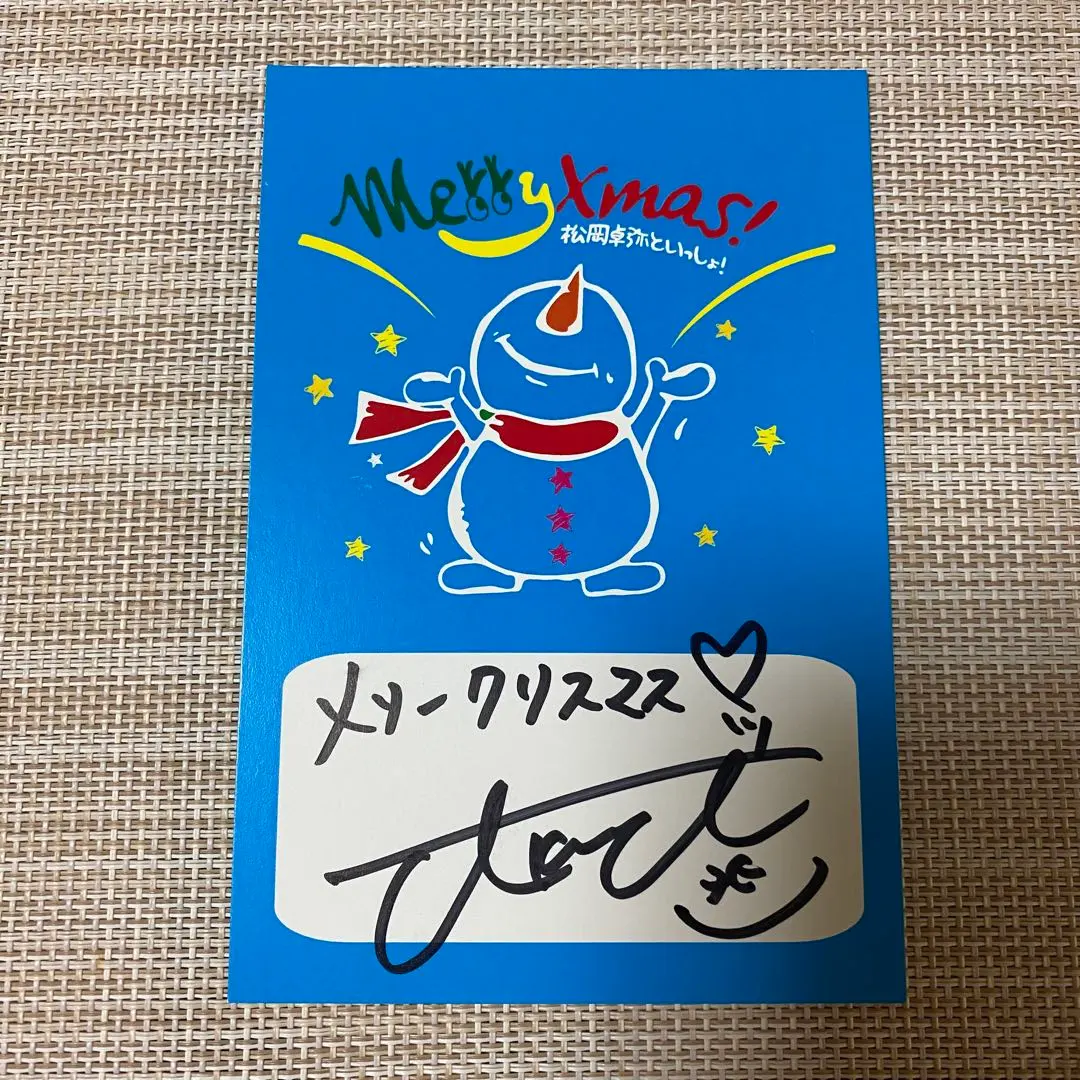 Merry Xmas!
松岡卓弥といっしょ!
メリークリスマス♡